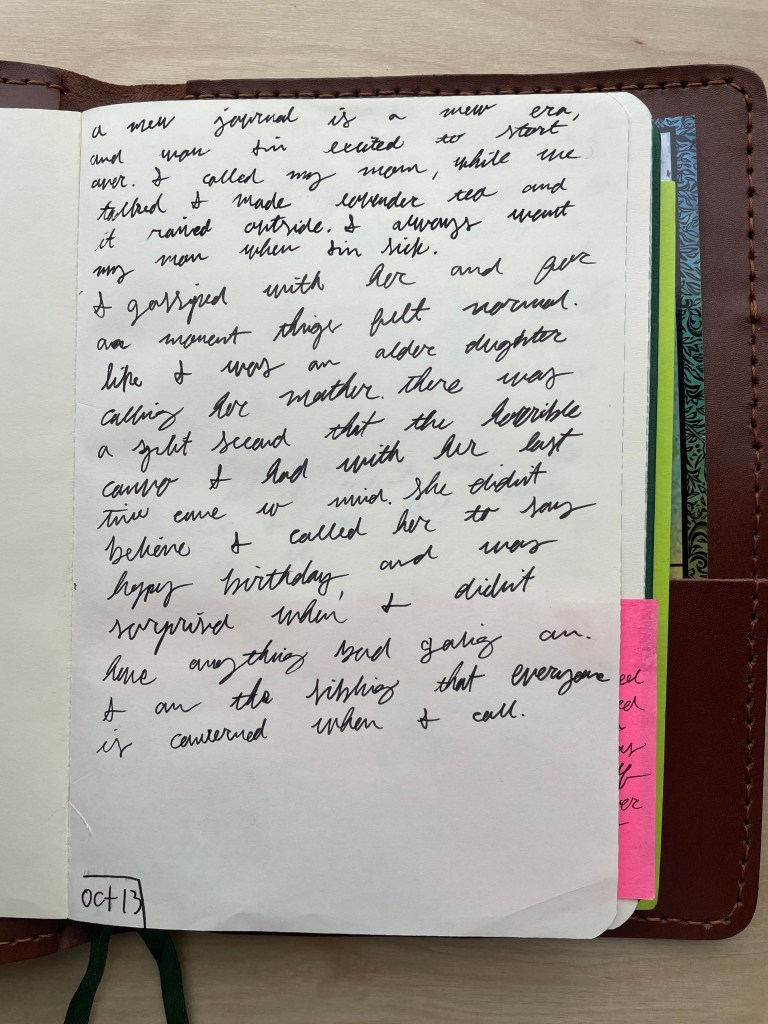 a new journal is a new era,
and wow im excited to start
over. I called my mom, while we
talked I made lavender tea and
it rained outside. I always want
my mom when im sick.
I gossiped with her and for
a moment things felt normal.
like I was an older dughter
calling her mother. there was
a split second that the horrible
convo I had with her last
time came to mind. She didnt
believe I called her to say
happy birthday, and was
surprised when I didn't
have anything bad going on.
I am the sibling that everyone
is concerned when I call.
Oct 13